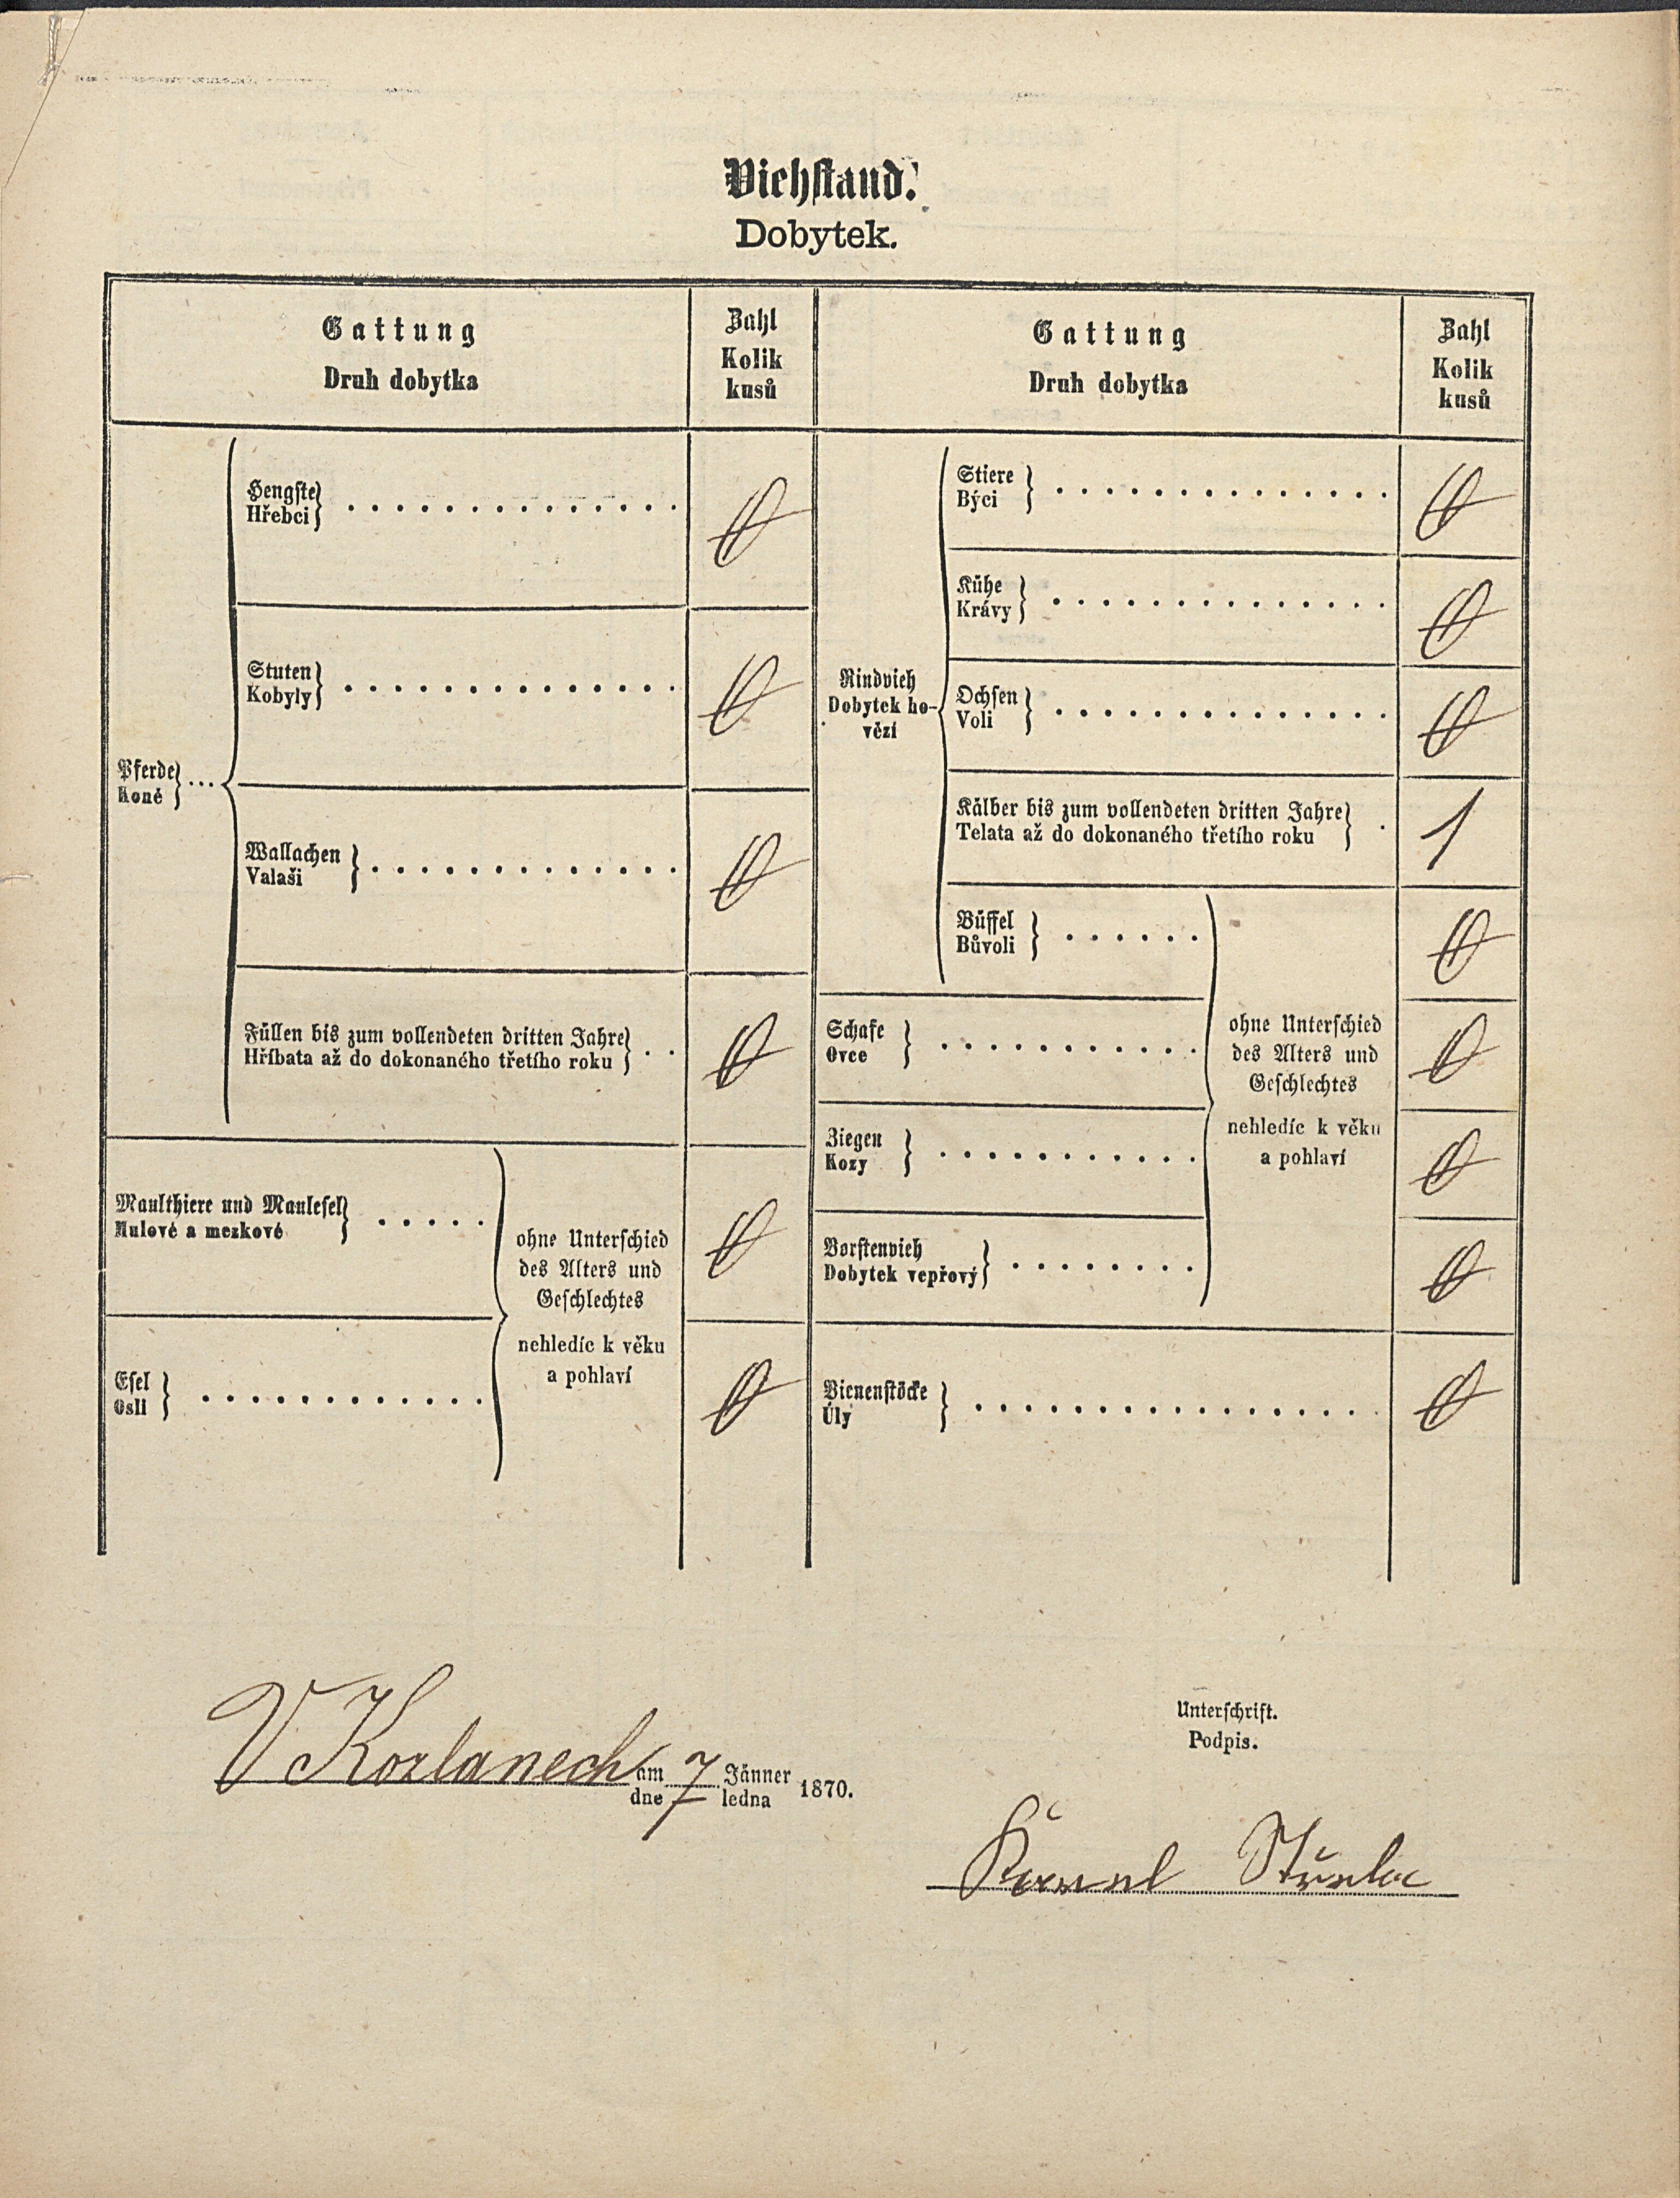 Viehstand.
Dobytek.
Gattung
Druh dobytka
Zahl
Kolik
kusů
Gattung
Druh dobytka
Zahl
Kolik
kusů
Pferde
Koně
Hengste
Hřebci
0
Stuten
Kobyly
0
Wallachen
Valaši
0
Füllen bis zum vollendeten dritten Jahre
Hříbata až do dokonaného třetího roku
0
Maulthiere und Maulesel
Mulové a mezkové
0
Esel
Osli
0
ohne Unterschied
des Alters und
Geschlechtes
nehledíc k věku
a pohlaví
Rindvieh
Dobytek ho-
vězí
Stiere
Býci
0
Kühe
Krávy
0
Ochsen
Voli
0
Kälber bis zum vollendeten dritten Jahre
Telata až do dokonaného třetího roku
1
Büffel
Bůvoli
0
Schafe
Ovce
0
Ziegen
Kozy
0
Borstenvieh
Dobytek vepřový
0
ohne Unterschied
des Alters und
Geschlechtes
nehledíc k věku
a pohlaví
Bienenstöcke
Úly
0
V Kozlanech am 7 Jänner 1870.
dne ledna
Unterschrift.
Podpis.